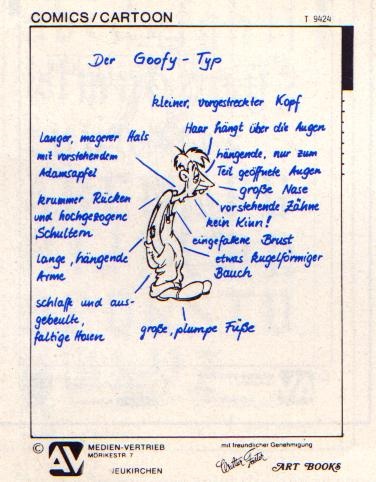 COMICS/CARTOON
T 9424
Der Goofy-Typ
kleiner, vorgestreckter Kopf
Haar hängt über die Augen
langer, magerer Hals
mit vorstehendem
Adamsapfel
hängende, nur zum
Teil geöffnete Augen
große Nase
vorstehende Zähne
kein Kinn!
krummer Rücken
und hochgezogene
Schultern
eingefallene Brust
etwas kugelförmiger
Bauch
lange, hängende
Arme
schlaffe und aus-
gebeulte,
faltige Hosen
große, plumpe Füße
© AV
MEDIEN-VERTRIEB
MÖRIKESTR. 7
NEUKIRCHEN
mit freundlicher Genehmigung
Walter Foster
ART BOOKS